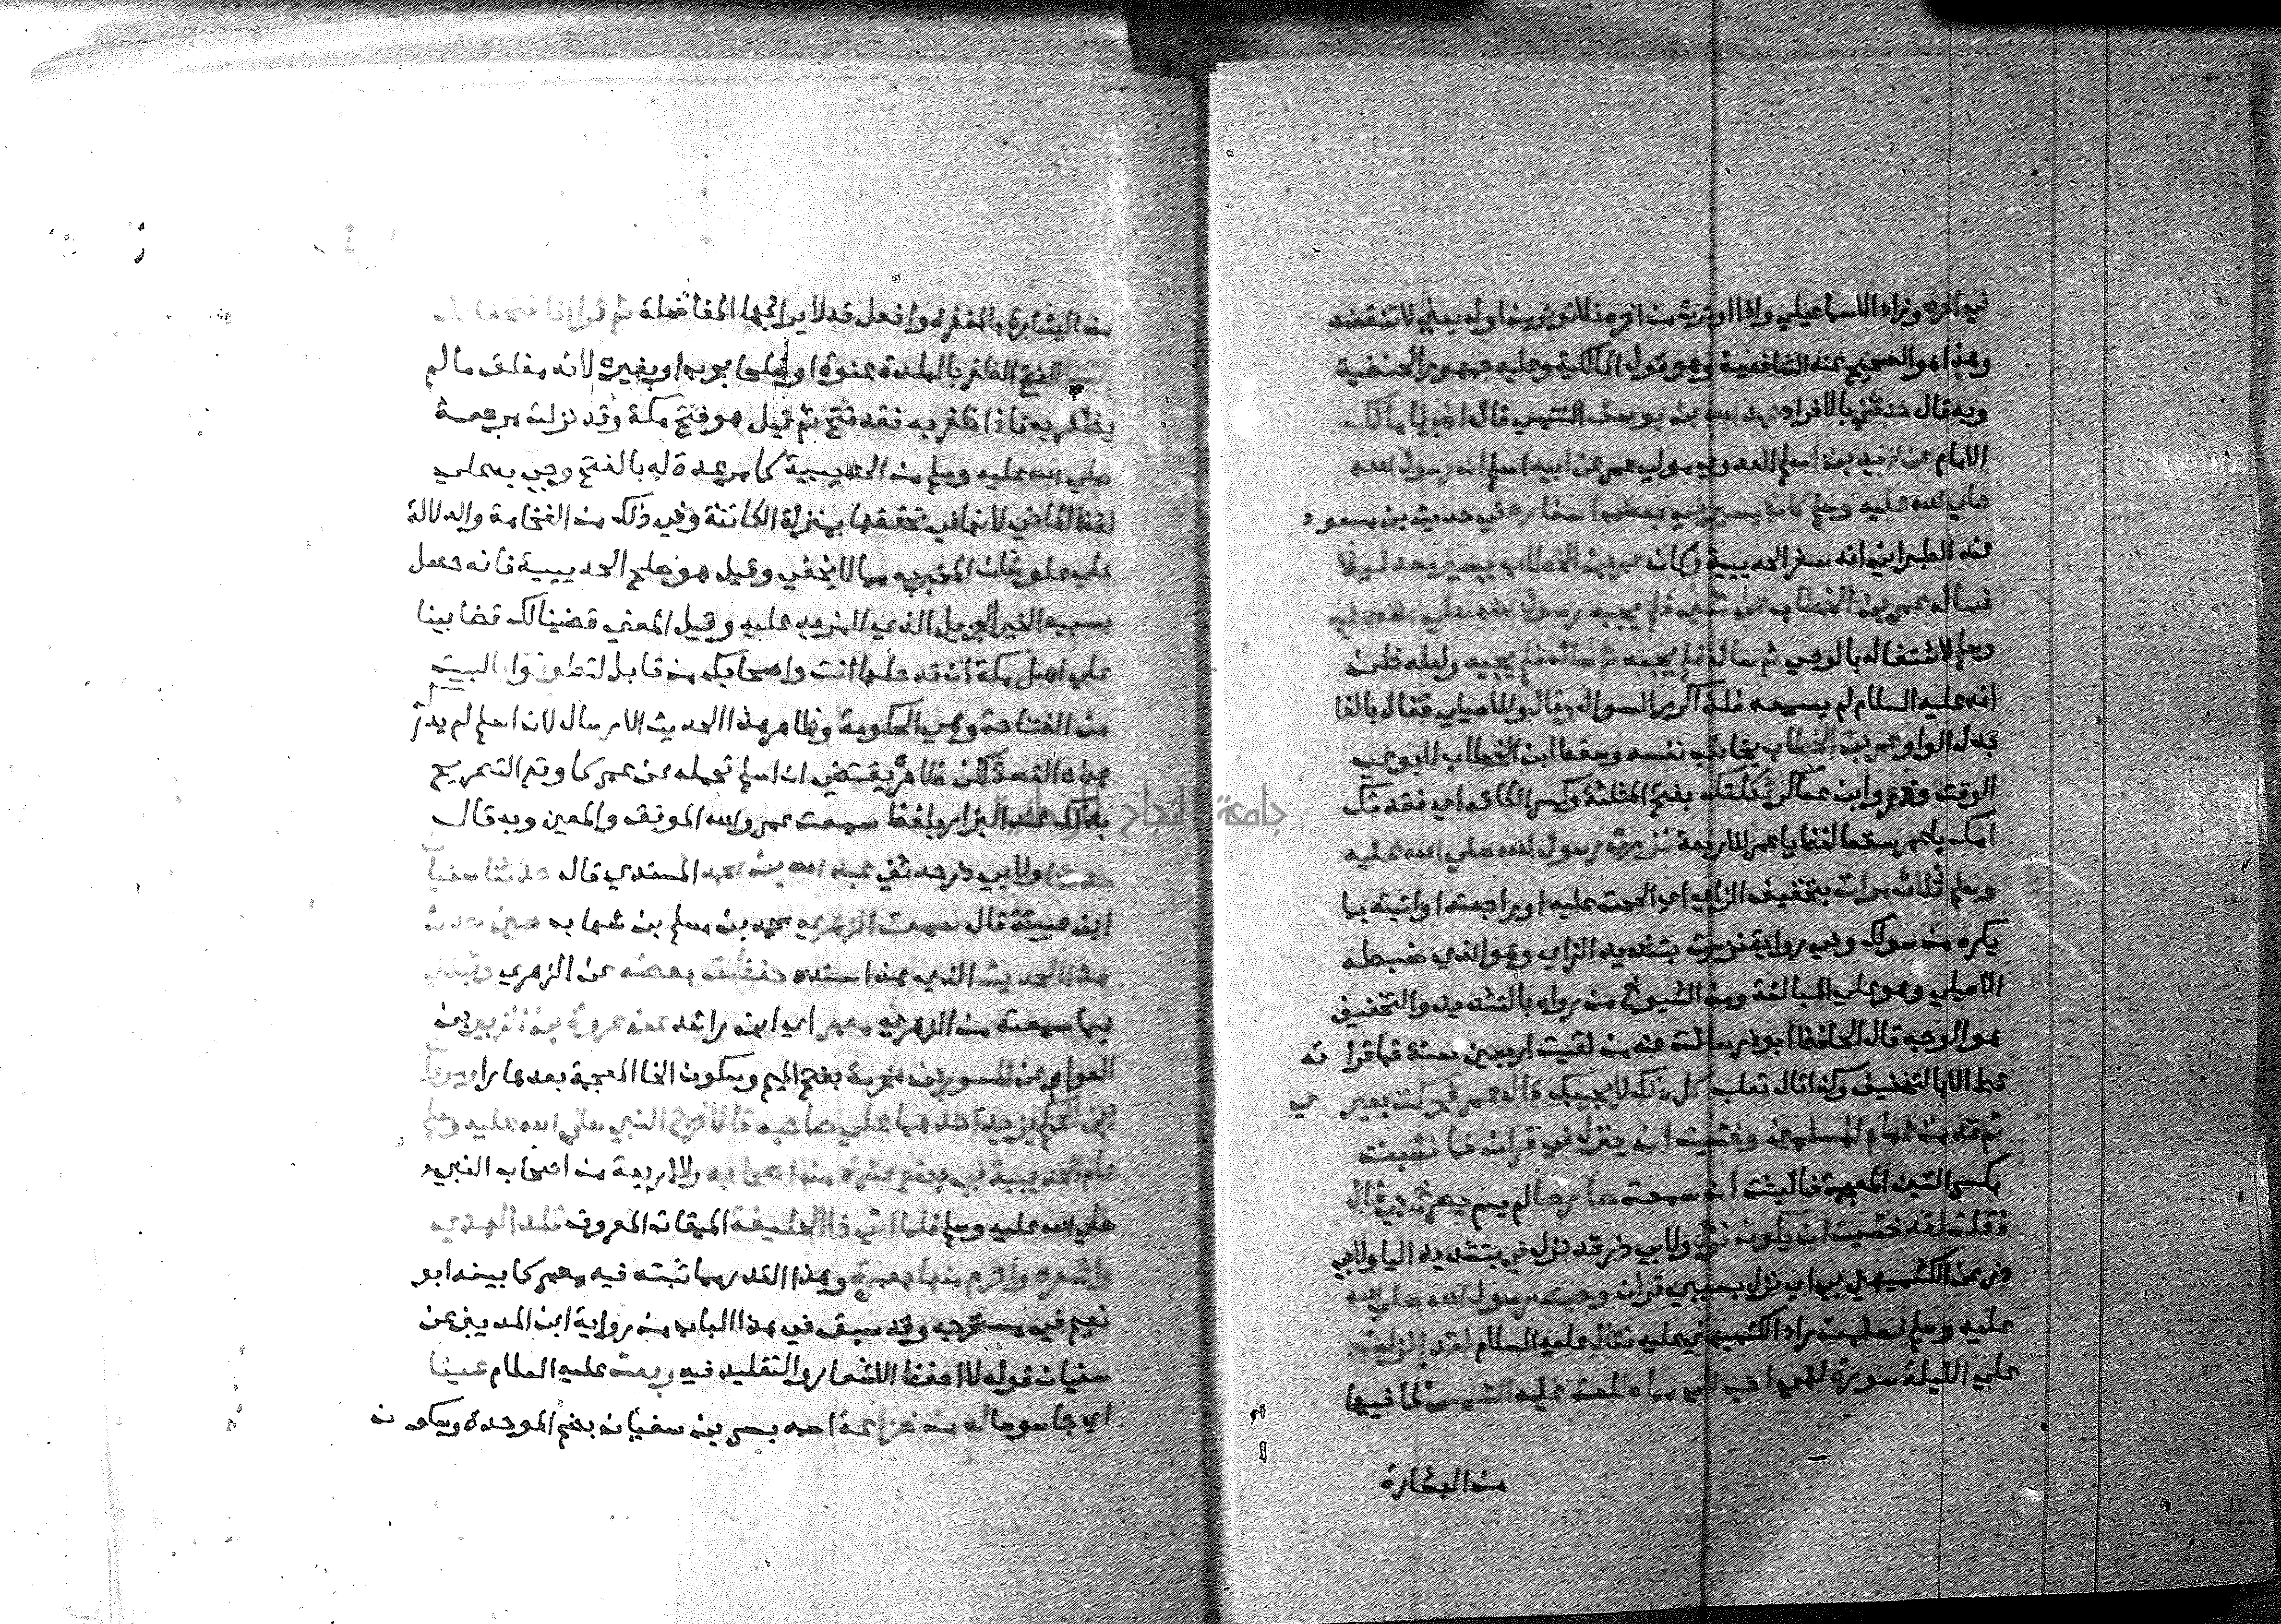 في اخره وزاد الاسماعيلي واذا اوترت من اخره فلا توتر من اوله يعني لا تنقضه
وهذا هو الصحيح عند الشافعية وهو قول المالكية وعليه جمهور الحنفية
وبه قال حدثني بالافراد عبد الله بن يوسف التنيسي قال اخبرنا مالك
الامام عن زيد بن اسلم العدوي مولى عمر عن ابيه اسلم ان رسول الله
صلي الله عليه وسلم كان يسير في بعض اسفاره في حديث بن مسعود
عند الطبراني انه سفر الحديبية وكان عمر بن الخطاب يسير معه ليلا
فساله عمر بن الخطاب عن شي فلم يجبه رسول الله صلي الله عليه
وسلم لاشتغاله بالوحي ثم ساله فلم يجبه ثم ساله فلم يجبه ولعله ظن
انه عليه السلام لم يسمعه فلذا كرر السوال وقال وللاصيلي فقال بالفا
بدل الواو عمر بن الخطاب يخاطب نفسه وسقط ابن الخطاب لابوي
الوقت وذر وابن عساكر ثكلتك بفتح المثلثة وكسر الكاف اي فقدتك
امك يا عمر سقط لفظ يا عمر للاربعة نزرت رسول الله صلي الله عليه
وسلم ثلاث مرات بتخفيف الزاي اي الححت عليه او راجعته او اتيته بما
يكره من سوالك وفي رواية نزرت بتشديد الزاي وهو الذي ضبطه
الاصيلي وهو علي المبالغة ومن الشيوخ من رواه بالتشديد والتخفيف
هو الوجه قال الحافظ ابو ذر سالت عنه من لقيت اربعين سنة فما قرا ته
قط الا بالتخفيف وكذا قال ثعلب كل ذلك لا يجيبك قال عمر فحركت بعير ي
ثم تقدمت امام المسلمين وخشيت ان ينزل في قران فما نشبت
بكسر الشين المعجمة فما لبثت ان سمعت صارخا لم يسم يصرخ بي قال
فقلت لقد خشيت ان يكون نزل ولابي ذر قد نزل في بتشديد اليا ولابي
ذر عن الكشميهني بي اي نزل بسببي قران وجيت رسول الله صلي الله
عليه وسلم فسلمت زاد الكشميهني عليه فقال عليه السلام لقد انزلت
علي الليلة سورة لهي احب الي مما طلعت عليه الشمس لما فيها
من البشارة
من البشارة بالمغفرة وافعل قد لا يراد بها المفاضلة ثم قرا انا فتحنا لك
الفتح الظفر بالبلدة عنوة او صلحا بحرب او بغيره لانه مغلق ما لم
يظفر به فاذا ظفر به فقد فتح ثم قيل هو فتح مكة وقد نزلت مرجعه
صلي الله عليه وسلم من الحديبية كما مر عدة له بالفتح وجي به علي
لفظ الماضي لانها في تحققها بمنزلة الكائنة وفي ذلك من الفخامة والدلالة
علي علو شان المخبر به ما لا يخفي وقيل هو صلح الحديبية فانه حصل
بسببه الخير الجزيل الذي لا مزيد عليه وقيل المعني قضينا لك قضا بينا
علي اهل مكة ان تدخلها انت واصحابك من قابل لتطوفوا بالبيت
من الفتاحة وهي الحكومة وظاهر هذا الحديث الارسال لان اسلم لم يدرك
هذه القصة لكن ظاهره يقتضي ان اسلم تحمله عن عمر كما وقع التصريح
بذلك عند البزار بلفظ سمعت عمر والله الموفق والمعين وبه قال
حدثنا ولابي ذر حدثني عبد الله بن محمد المسندي قال حدثنا سفيان
ابن عيينة قال سمعت الزهري محمد بن مسلم بن شهاب حين حدث
هذا الحديث الذي هذا اسنده حفظت بعضه عن الزهري وثبتني
فيما سمعته من الزهري معمر اي ابن راشد عن عروة بن الزبير بن
العوام عن المسور بن مخرمة بفتح الميم وسكون الخا المعجمة بعدها را ومروان
ابن الحكم يزيد احدهما علي صاحبه قالا خرج النبي صلي الله عليه وسلم
عام الحديبية في بضع عشرة من اصحابه وللاربعة من اصحاب النبي
صلي الله عليه وسلم فلما اتي ذا الحليفة الميقات المعروف قلد الهدي
واشعره واحرم منها بعمرة وهذا القدر مما ثبته فيه معمر كما بينه ابو
نعيم في مستخرجه وقد سبق في هذا الباب من رواية ابن المديني عن
سفيان قوله لا احفظ الاشعار والتقليد فيه وبعث عليه السلام عينا
اي جاسوسا له من خزاعة اسمه بسر بن سفيان بضم الموحدة وسكون